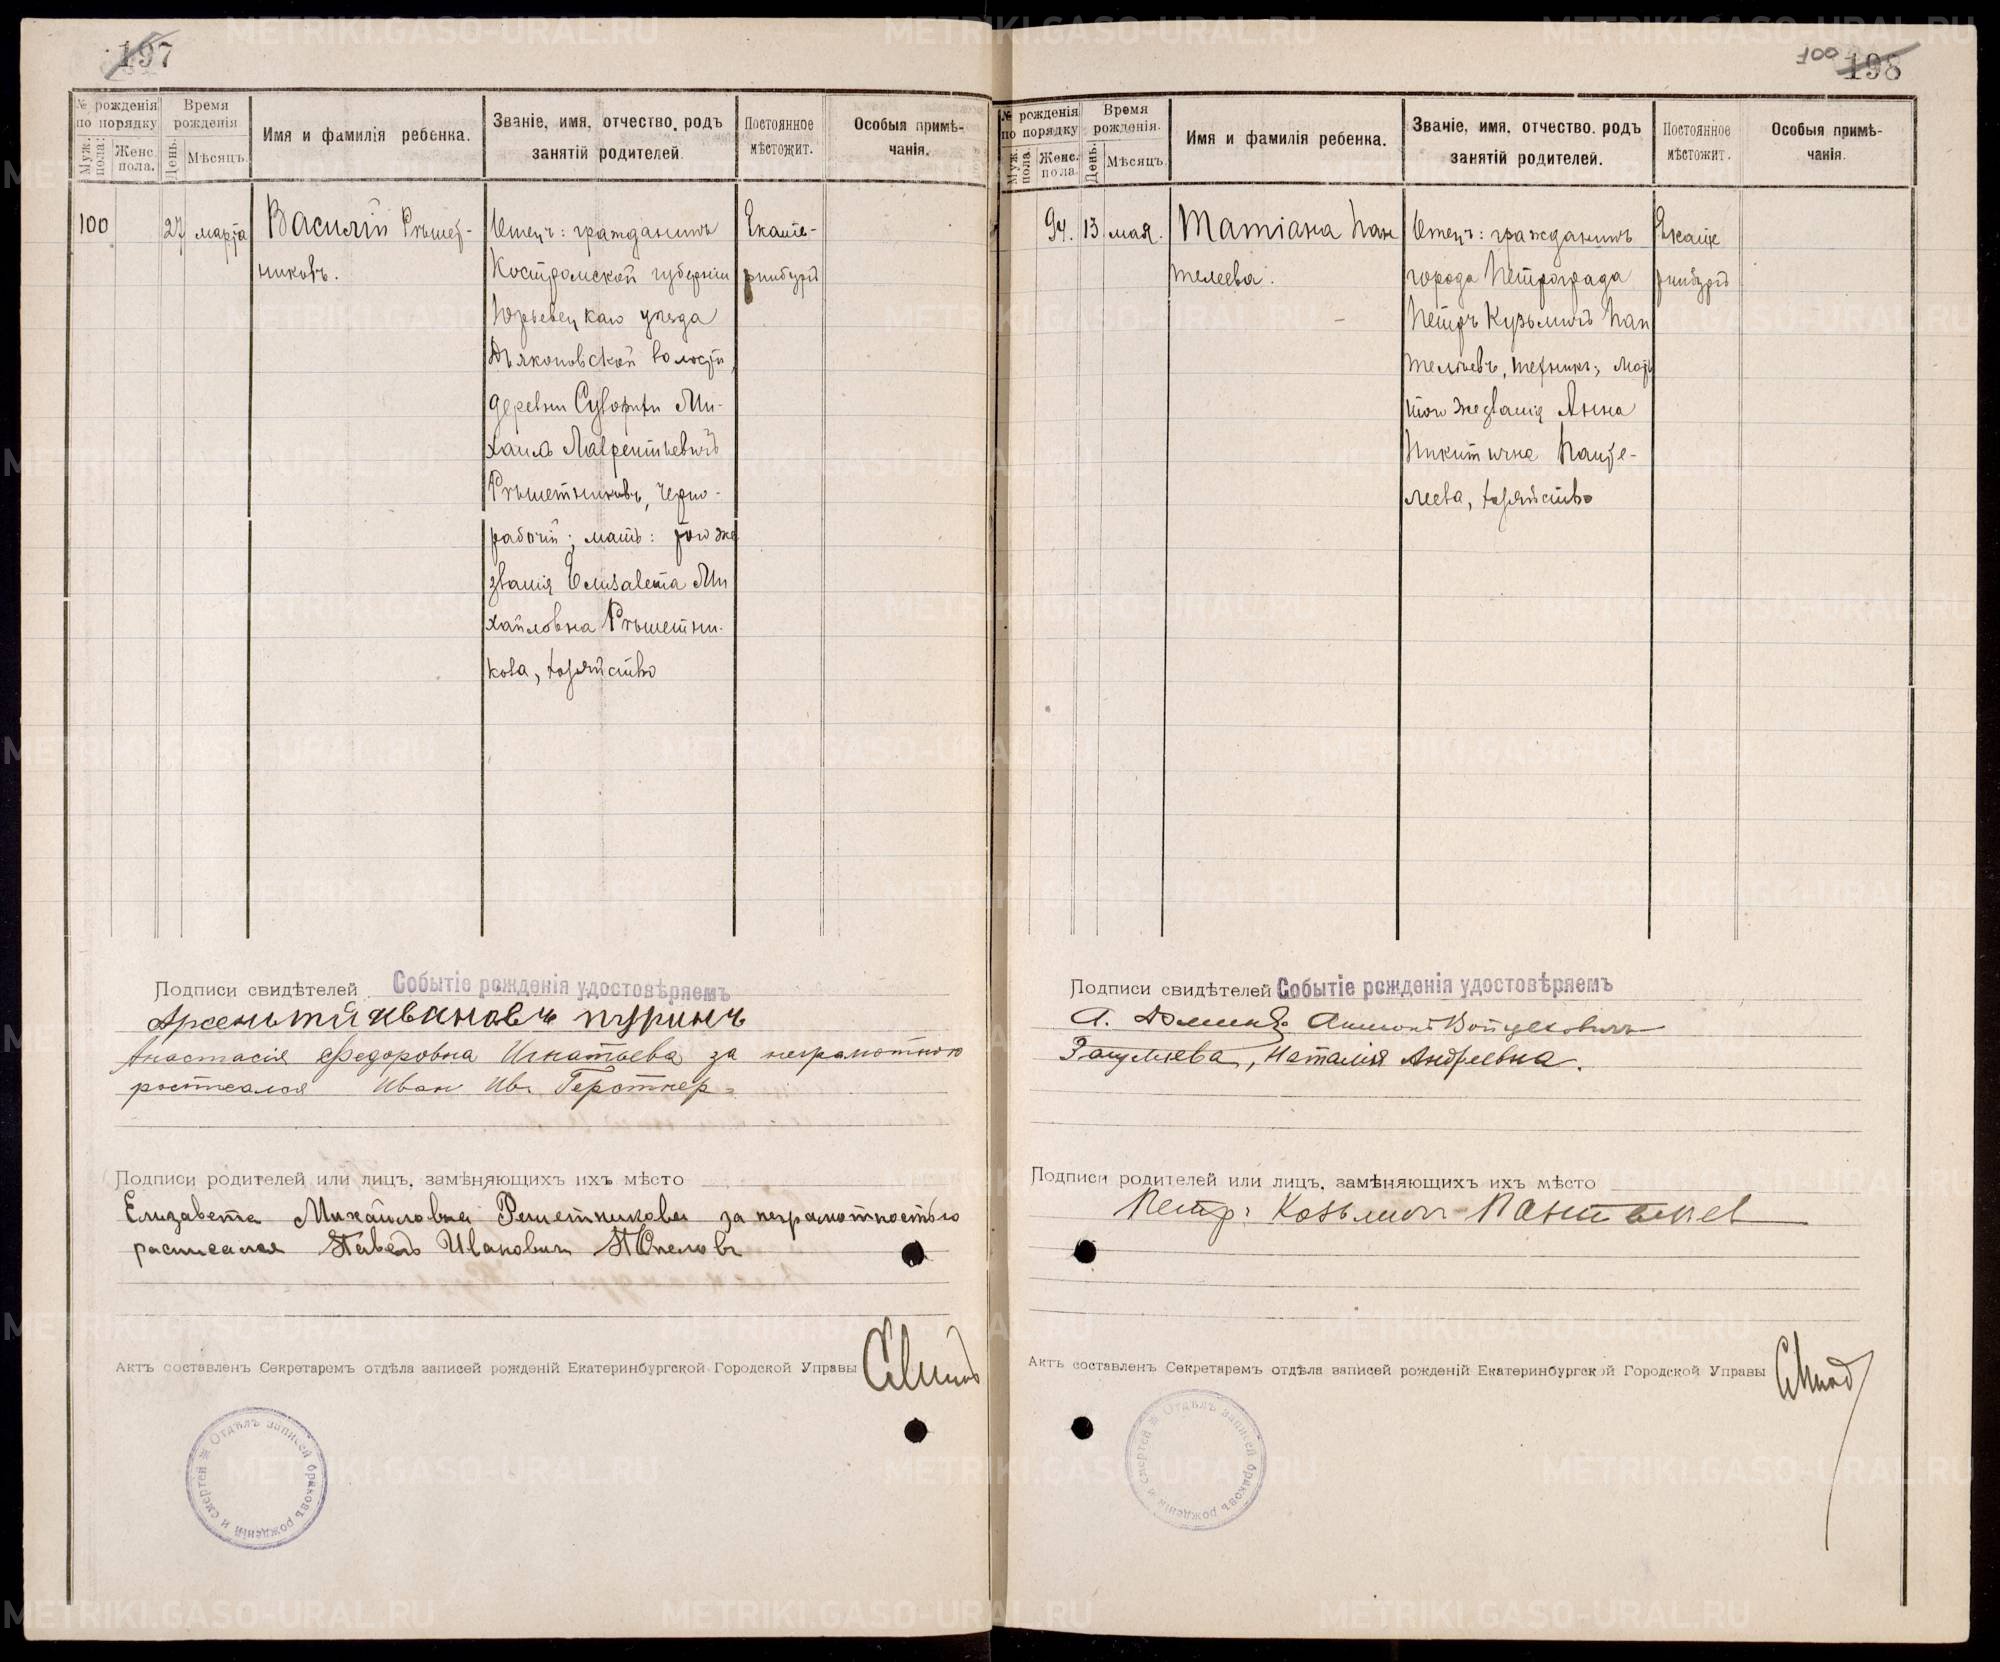 197
№ рожденія по порядку
Муж. пола.
Женс. пола.
Время рожденія
День.
Мѣсяцъ.
Имя и фамилія ребенка.
Званіе, имя, отчество, родъ
занятій родителей.
Постоянное
мѣстожит.
Особыя примѣ-
чанія.
100 27 марта
Василій Рѣшет-
никовъ.
Отецъ: гражданинъ
Костромской губерніи
Юрьевецкаго уѣзда
Дьяконовской волости,
деревни
Ми-
хаилъ Лаврентьевичъ
Рѣшетниковъ, черно-
рабочій; мать: того же
званія Елизавета Ми
хайловна Рѣшетни-
кова, хозяйство
Екате-
ринбургъ
Подписи свидѣтелей
Событіе рожденія удостовѣряемъ
Арсентій Ивановъ Пуринъ
Анастасія Федоровна Игнатьева за неграмотною
Иван Ив. Герстнер
Подписи родителей или лицъ, замѣняющихъ ихъ мѣсто
Елизавета Михайловна Решетникова за неграмотностью
расписался Павелъ Ивановичъ
Актъ составленъ Секретаремъ отдѣла записей рожденій Екатеринбургской Городской Управы
Отдѣлъ записей браковъ рожденій и смертей
100 198
№ рожденія
по порядку
Муж. пола.
Женс. пола.
Время
рожденія.
День.
Мѣсяцъ.
Имя и фамилія ребенка.
Званіе, имя, отчество, родъ
занятій родителей.
Постоянное
мѣстожит.
Особыя примѣ-
чанія.
94. 13 мая.
Татіана Пан
телеева.
Отецъ: гражданинъ
города Петрограда
Петръ Кузьмичъ Пан
телѣевъ, техникъ; мать
того же званія Анна
Никитична Панте-
леева, хозяйство
Екате
ринбургъ
Подписи свидѣтелей
Событіе рожденія удостовѣряемъ
А.
Наталія Андреевна.
Подписи родителей или лицъ, замѣняющихъ ихъ мѣсто
Петръ Козьмичъ Пантелеев
Актъ составленъ Секретаремъ отдѣла записей рожденій Екатеринбургской Городской Управы
Отдѣлъ записей браковъ рожденій и смертей
METRIKI.GASO-URAL.RU